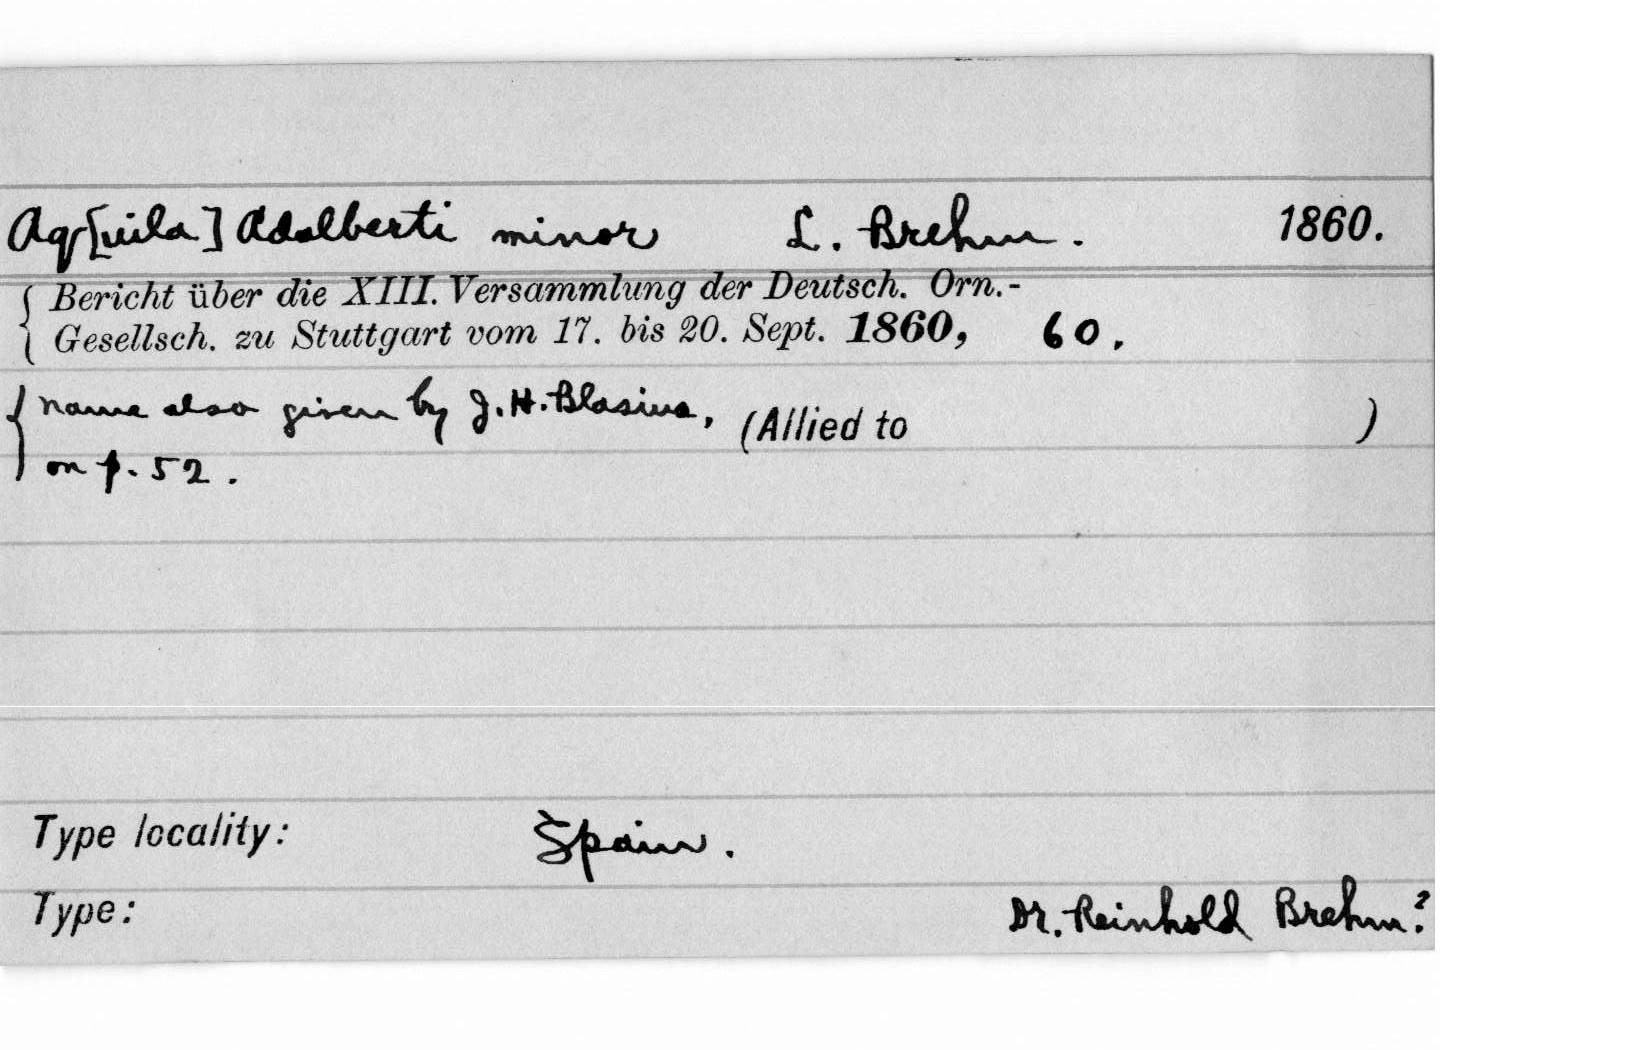 Aq[uila] Adalberti minor L. Brehm. 1860.
{ Bericht über die XIII. Versammlung der Deutsch. Orn.-
Gesellsch. zu Stuttgart vom 17. bis 20. Sept. 1860, 60.
{ name also given by J. H. Blasius, (Allied to )
on p. 52.
Type locality: Spain.
Type: Dr. Reinhold Brehm?